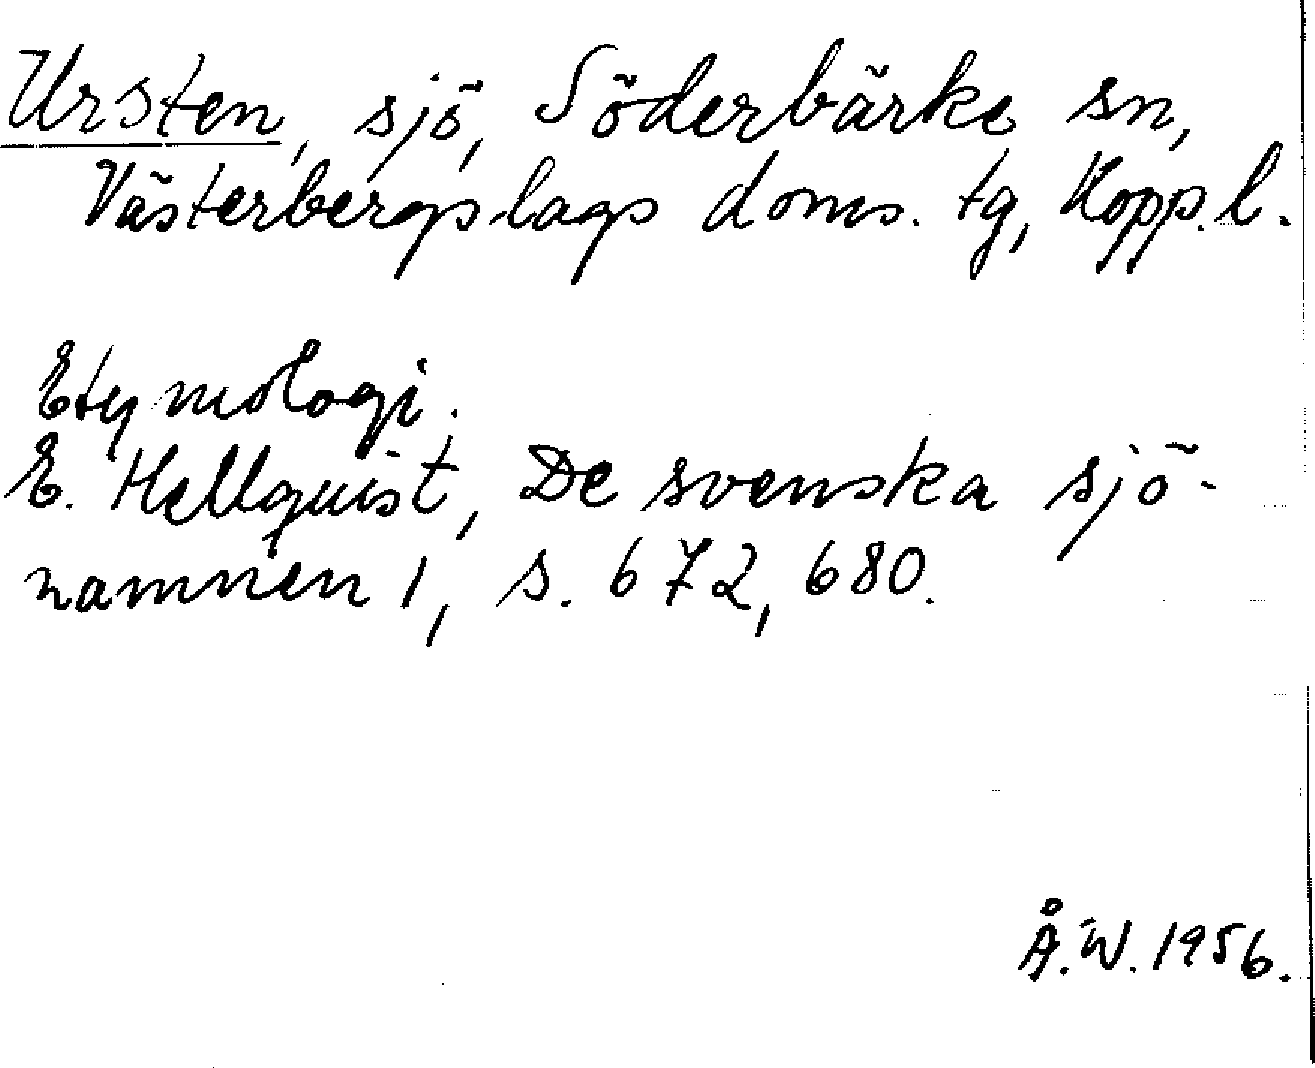 Ursten, sjö, Söderbärke sn,
Västerbergslags doms. tg, Kopp. l.
Etymologi.
E. Hellquist, De svenska sjö-
namnen 1, s. 672, 680.
Å.W. 1956.